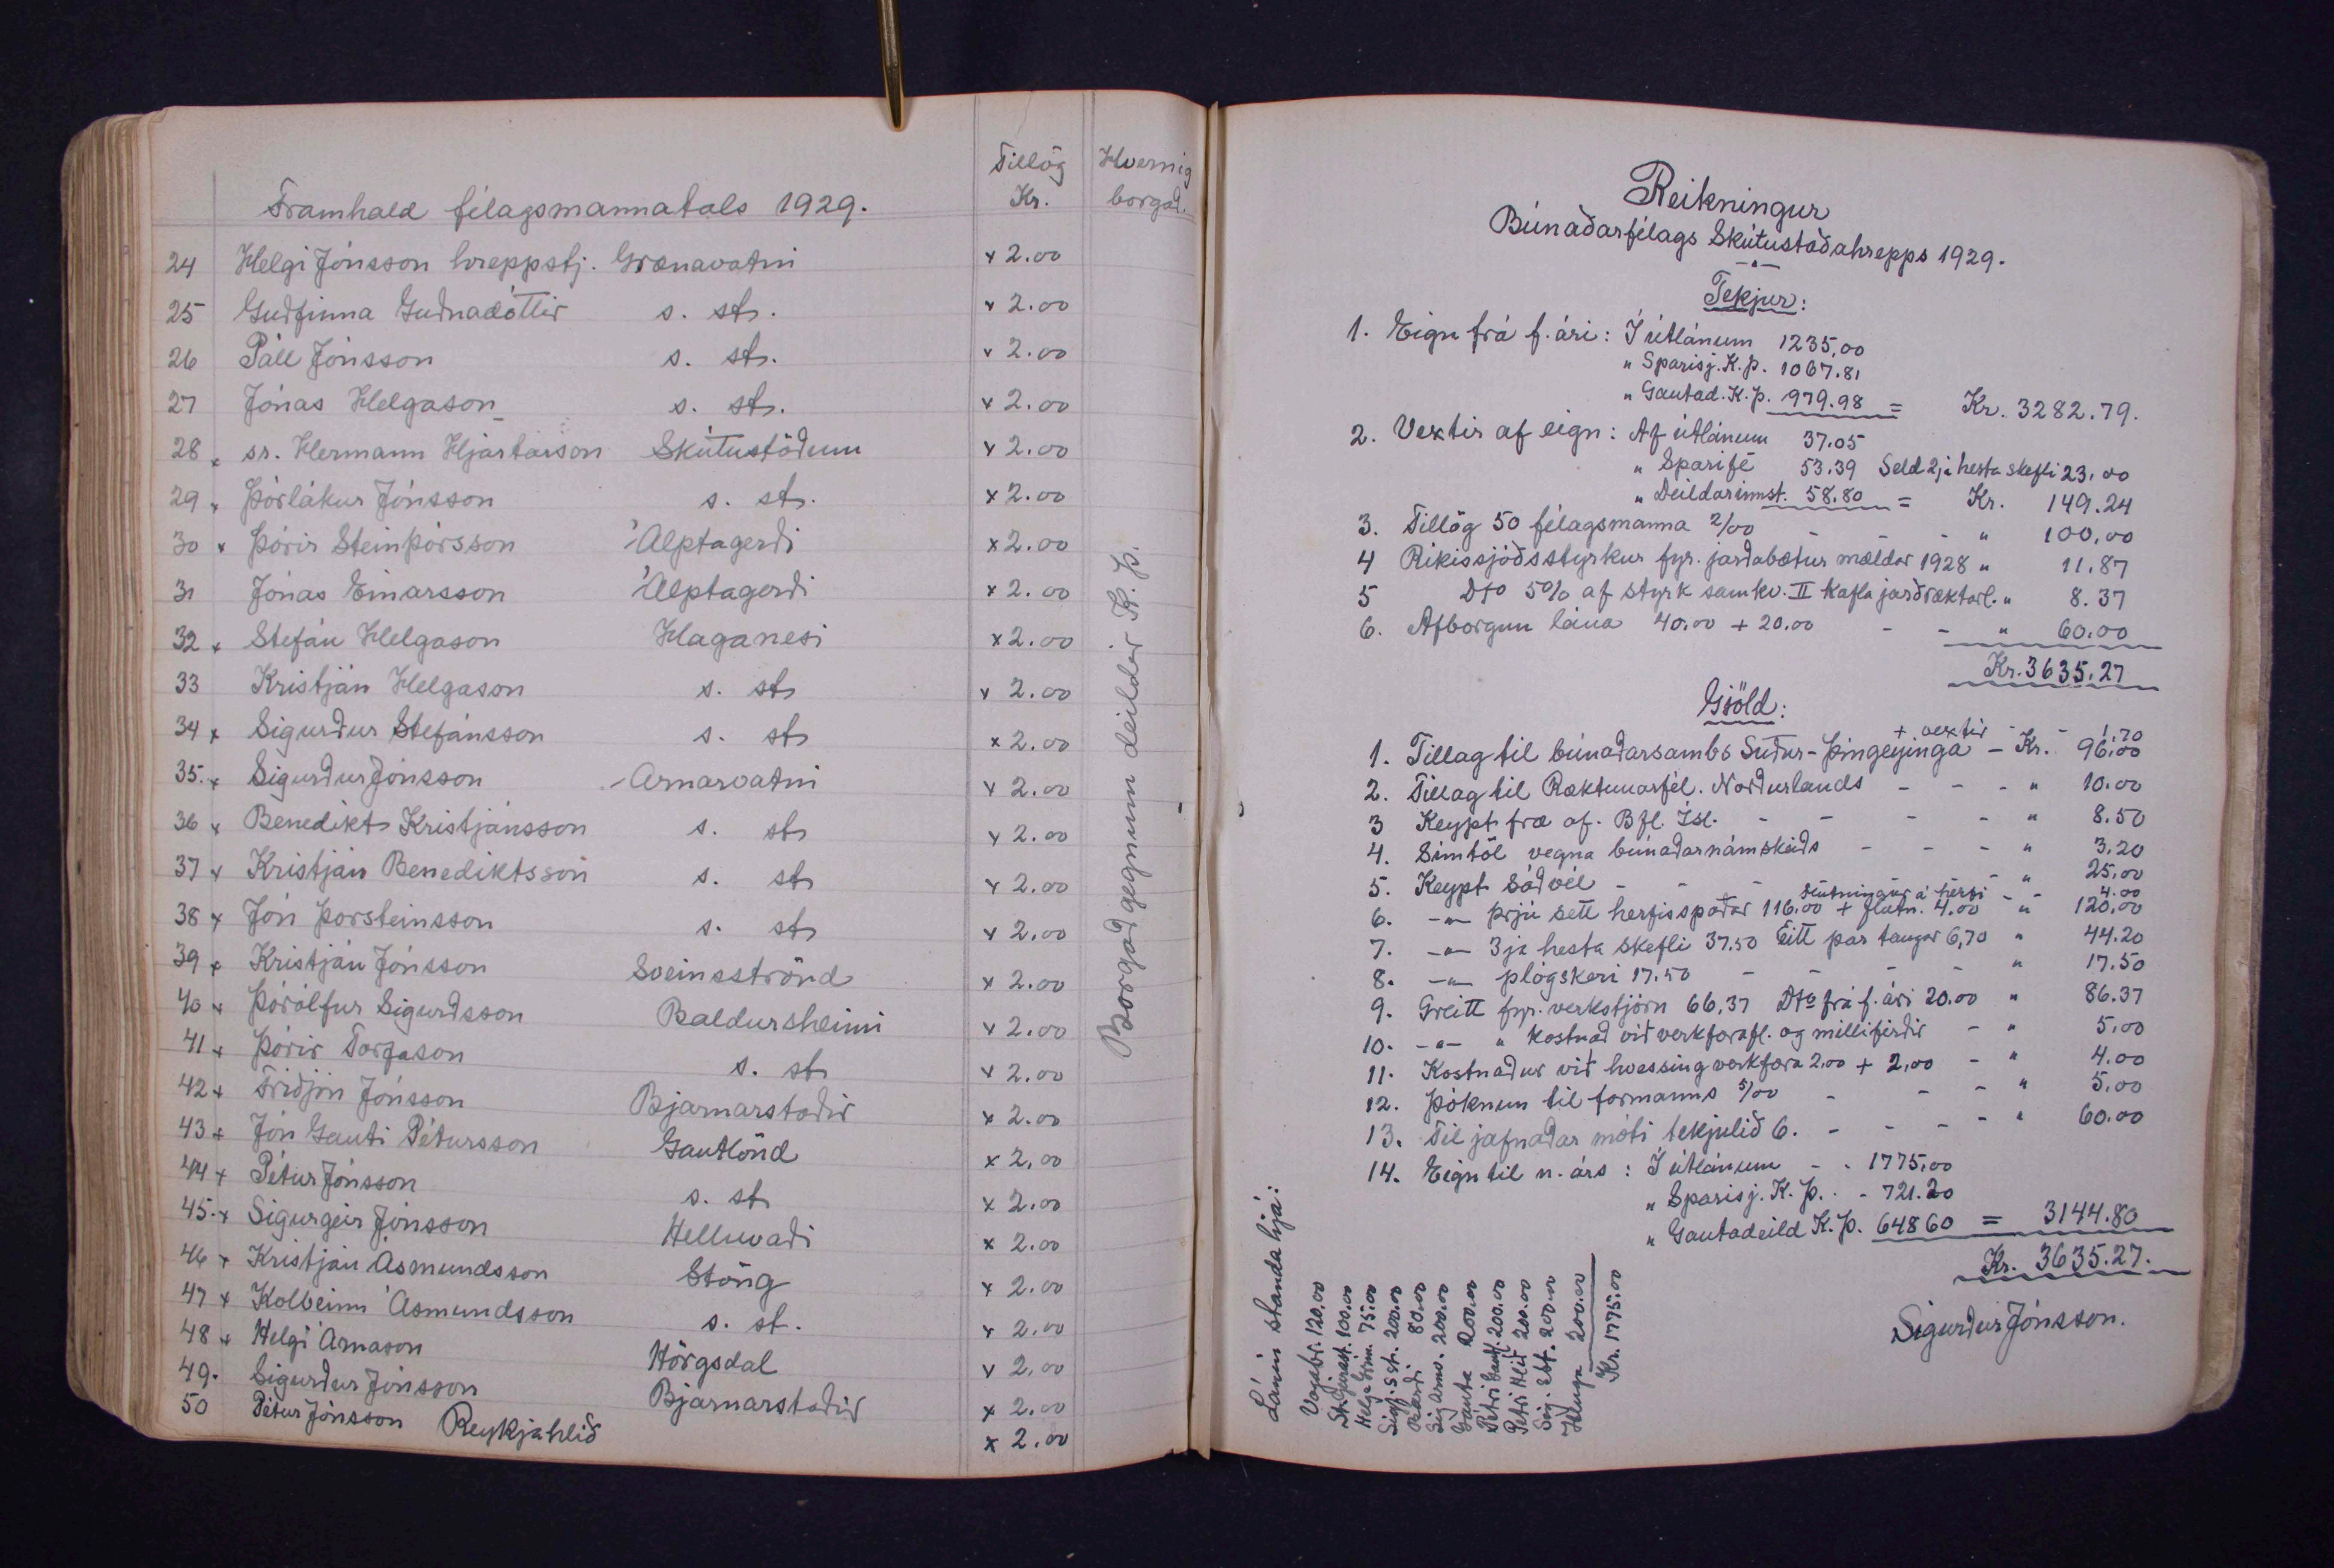 Framhald félagsmannatals 1929.
Tillög Kr.
Hvernig borgad.
24 Helgi Jónsson hreppstj. Grænavatni × 2.00
25 Gudfinna Gudnadóttir s. st. × 2.00
26 Páll Jónsson s. st. × 2.00
27 Jónas Helgason s. st. × 2.00
28 × sr. Hermann Hjartarson Skútustödum × 2.00
29 × Þórlákur Jónsson s. st. × 2.00
30 × Þórir Steinþórsson Álptagerdi × 2.00
31 Jónas Einarsson Álptagerdi × 2.00
32 × Stefán Helgason Haganesi × 2.00
33 Kristján Helgason s. st × 2.00
34 × Sigurdur Stefánsson s. st × 2.00
35. × Sigurdur Jónsson Arnarvatni × 2.00
36 × Benedikt Kristjánsson s. st × 2.00
37 × Kristján Benediktsson s. st × 2.00
38 × Jón Þorsteinsson s. st × 2.00
39 × Kristján Jónsson Sveinsströnd × 2.00
40 × Þórólfur Sigurdsson Baldursheimi × 2.00
41 × Þórir Torfason s. st × 2.00
42 × Fridjón Jónsson Bjarnarstadir × 2.00
43 × Jón Gauti Pétursson Gautlönd × 2.00
44 × Pétur Jónsson s. st × 2.00
45. × Sigurgeir Jónsson Helluvadi × 2.00
46 × Kristján Ásmundsson Stöng × 2.00
47 × Kolbeinn Ásmundsson s. st. × 2.00
48 × Helgi Árnason Hörgsdal × 2.00
49. Sigurdur Jónsson Bjarnarstadir × 2.00
50 Pétur Jónsson Reykjahlíð × 2.00
Borgad gegnum deildir K.Þ.
Reikningur
Búnaðarfélags Skútustaðahrepps 1929.
Tekjur:
1. Eign frá f. ári: Í útlánum 1235,00
" Sparisj. K.Þ. 1067.81
" Gautad. K.Þ. 979.98 = Kr. 3282.79.
2. Vextir af eign: Af útlánum 37.05
" Sparifé 53.39 Seld 2ja hesta skefli 23,00
" Deildarinnst. 58.80 = Kr. 149.24
3. Tillög 50 félagsmanna 2/00 - - " 100,00
4 Ríkissjóðsstyrkur fyr. jardabætur mældar 1928 " 11.87
5 Dto 5% af styrk samkv. II kafla jarðræktarl. " 8.37
6. Afborgun lána 40.00 + 20.00 - - " 60.00
Kr. 3635.27
Gjöld:
+ vextir - - 1.70
1. Tillag til búnadarsambs Sudur-Þingeyinga - Kr. 96.00
2. Tillag til Ræktunarfél. Nordurlands - - - " 10.00
3 Keypt fræ af. Bfl. Ísl. - - - - " 8.50
4. Símtöl vegna búnadarnámskeids - - - " 3.20
5. Keypt Sádvél - - - - " 25,00
flutningur á herfi - - 4.00
6. -"- þrjú sett herfisspadar 116.00 + flutn. 4.00 " 120,00
7. -"- 3ja hesta skefli 37.50 Eitt par taugar 6,70 " 44.20
8. -"- plógskeri 17.50 - - - - " 17.50
9. Greitt fyr. verkstjórn 66,37 Dto frá f. ári 20.00 " 86.37
10. -"- " kostnad vid verkfærafl. og milliferdir - " 5.00
11. Kostnadur vid hvessing verkfæra 2,00 + 2,00 - " 4.00
12. Þóknun til formanns 5/00 - - - " 5.00
13. Til jafnadar móti tekjulid 6. - - - - " 60.00
14. Eign til n. árs: Í útlánum - - 1775,00
" Sparisj. K.Þ. - - 721.20
" Gautadeild K.Þ. 648 60 = 3144.80
Kr. 3635.27.
Sigurdur Jónsson.
Lánin standa hjá:
120,00
100.00
Helga 75.00
200.00
80.00
200.00
Gauta 200.00
Pétri Gautl. 200.00
Pétri Hlíd 200.00
200.00
200.00
Kr. 1775.00